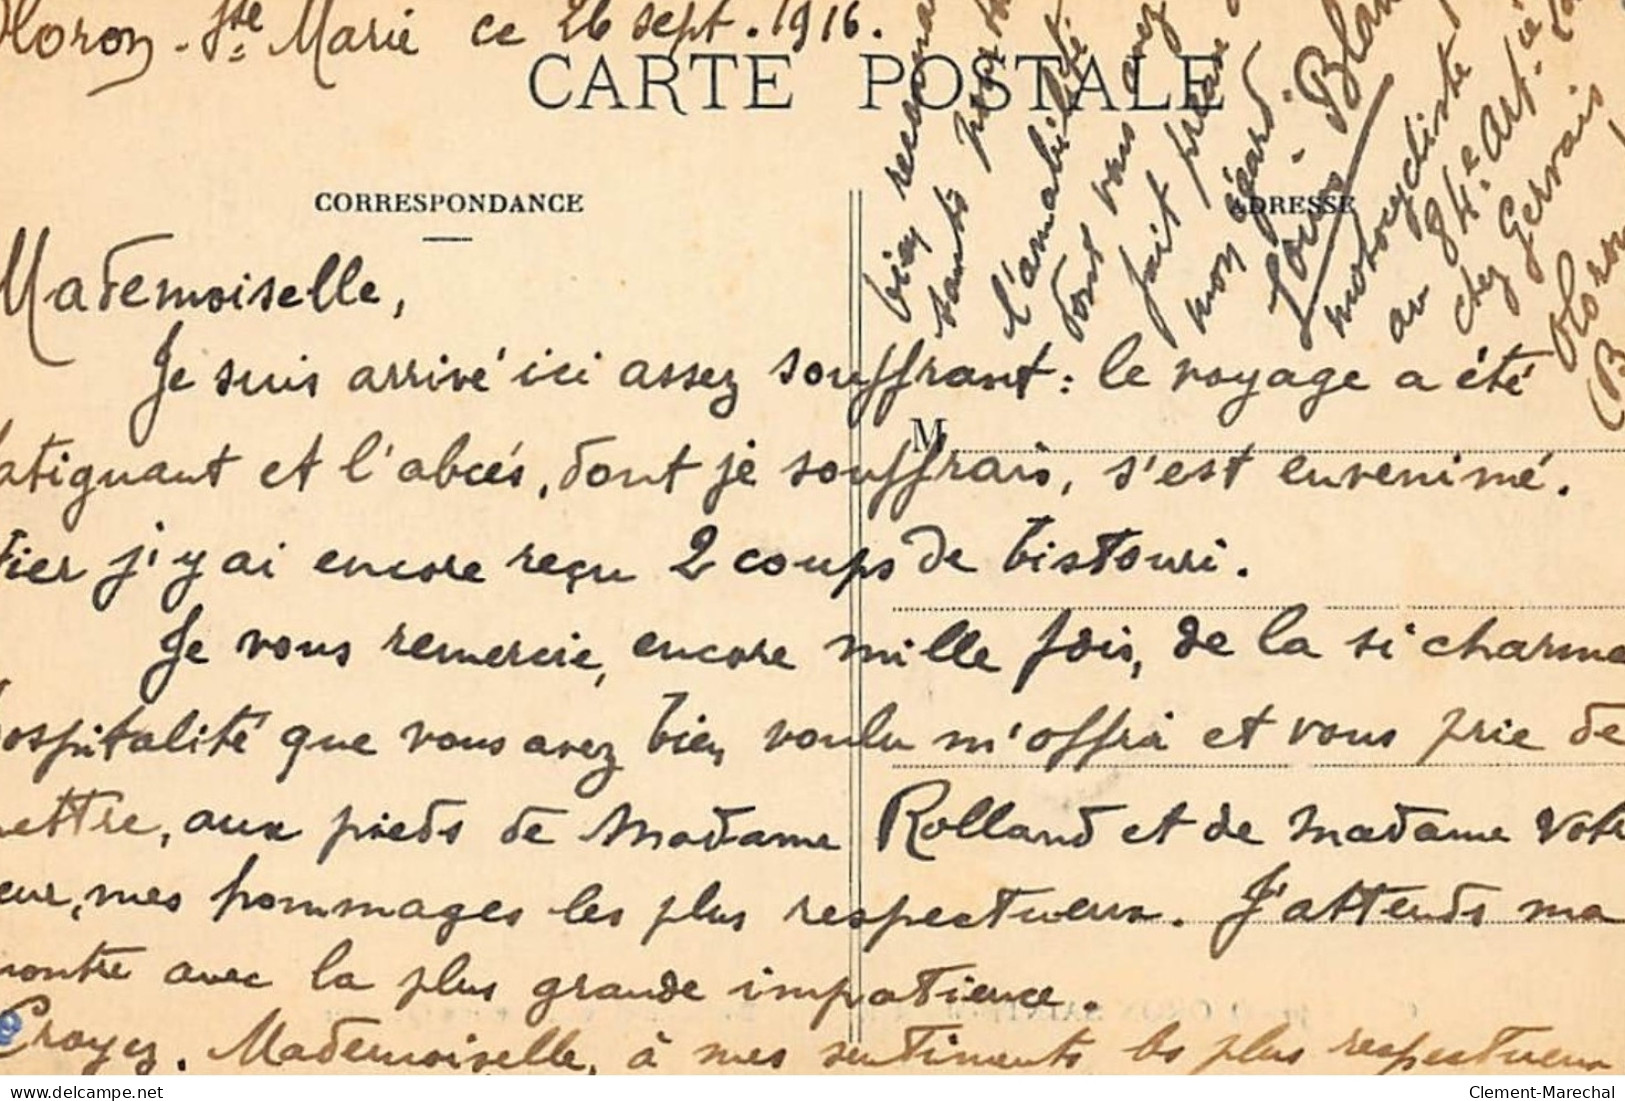 Oloron - Ste Marie ce 26 sept. 1916.
CARTE POSTALE
CORRESPONDANCE
ADRESSE
Mademoiselle,
Je suis arrivé ici assez souffrant : le voyage a été
fatiguant et l'abcés, dont je souffrais, s'est envenimé.
Hier j'y ai encore reçu 2 coups de bistouri.
Je vous remercie, encore mille fois, de la si charme
hospitalité que vous avez bien voulu m'offrir et vous prie de
mettre, aux pieds de Madame Rolland et de madame votre
mes hommages les plus respectueux. J'attends ma
montre avec la plus grande impatience.
Croyez, Mademoiselle, à mes sentiments les plus respectueux
M
bien reconnais
sants pour
l'amabilité
dont vous avez
fait preuve
mon égard.
Louis Blan
motocycliste
au 84e Art-ie
chez Gervais
Oloron
(B
Clement-Marechal